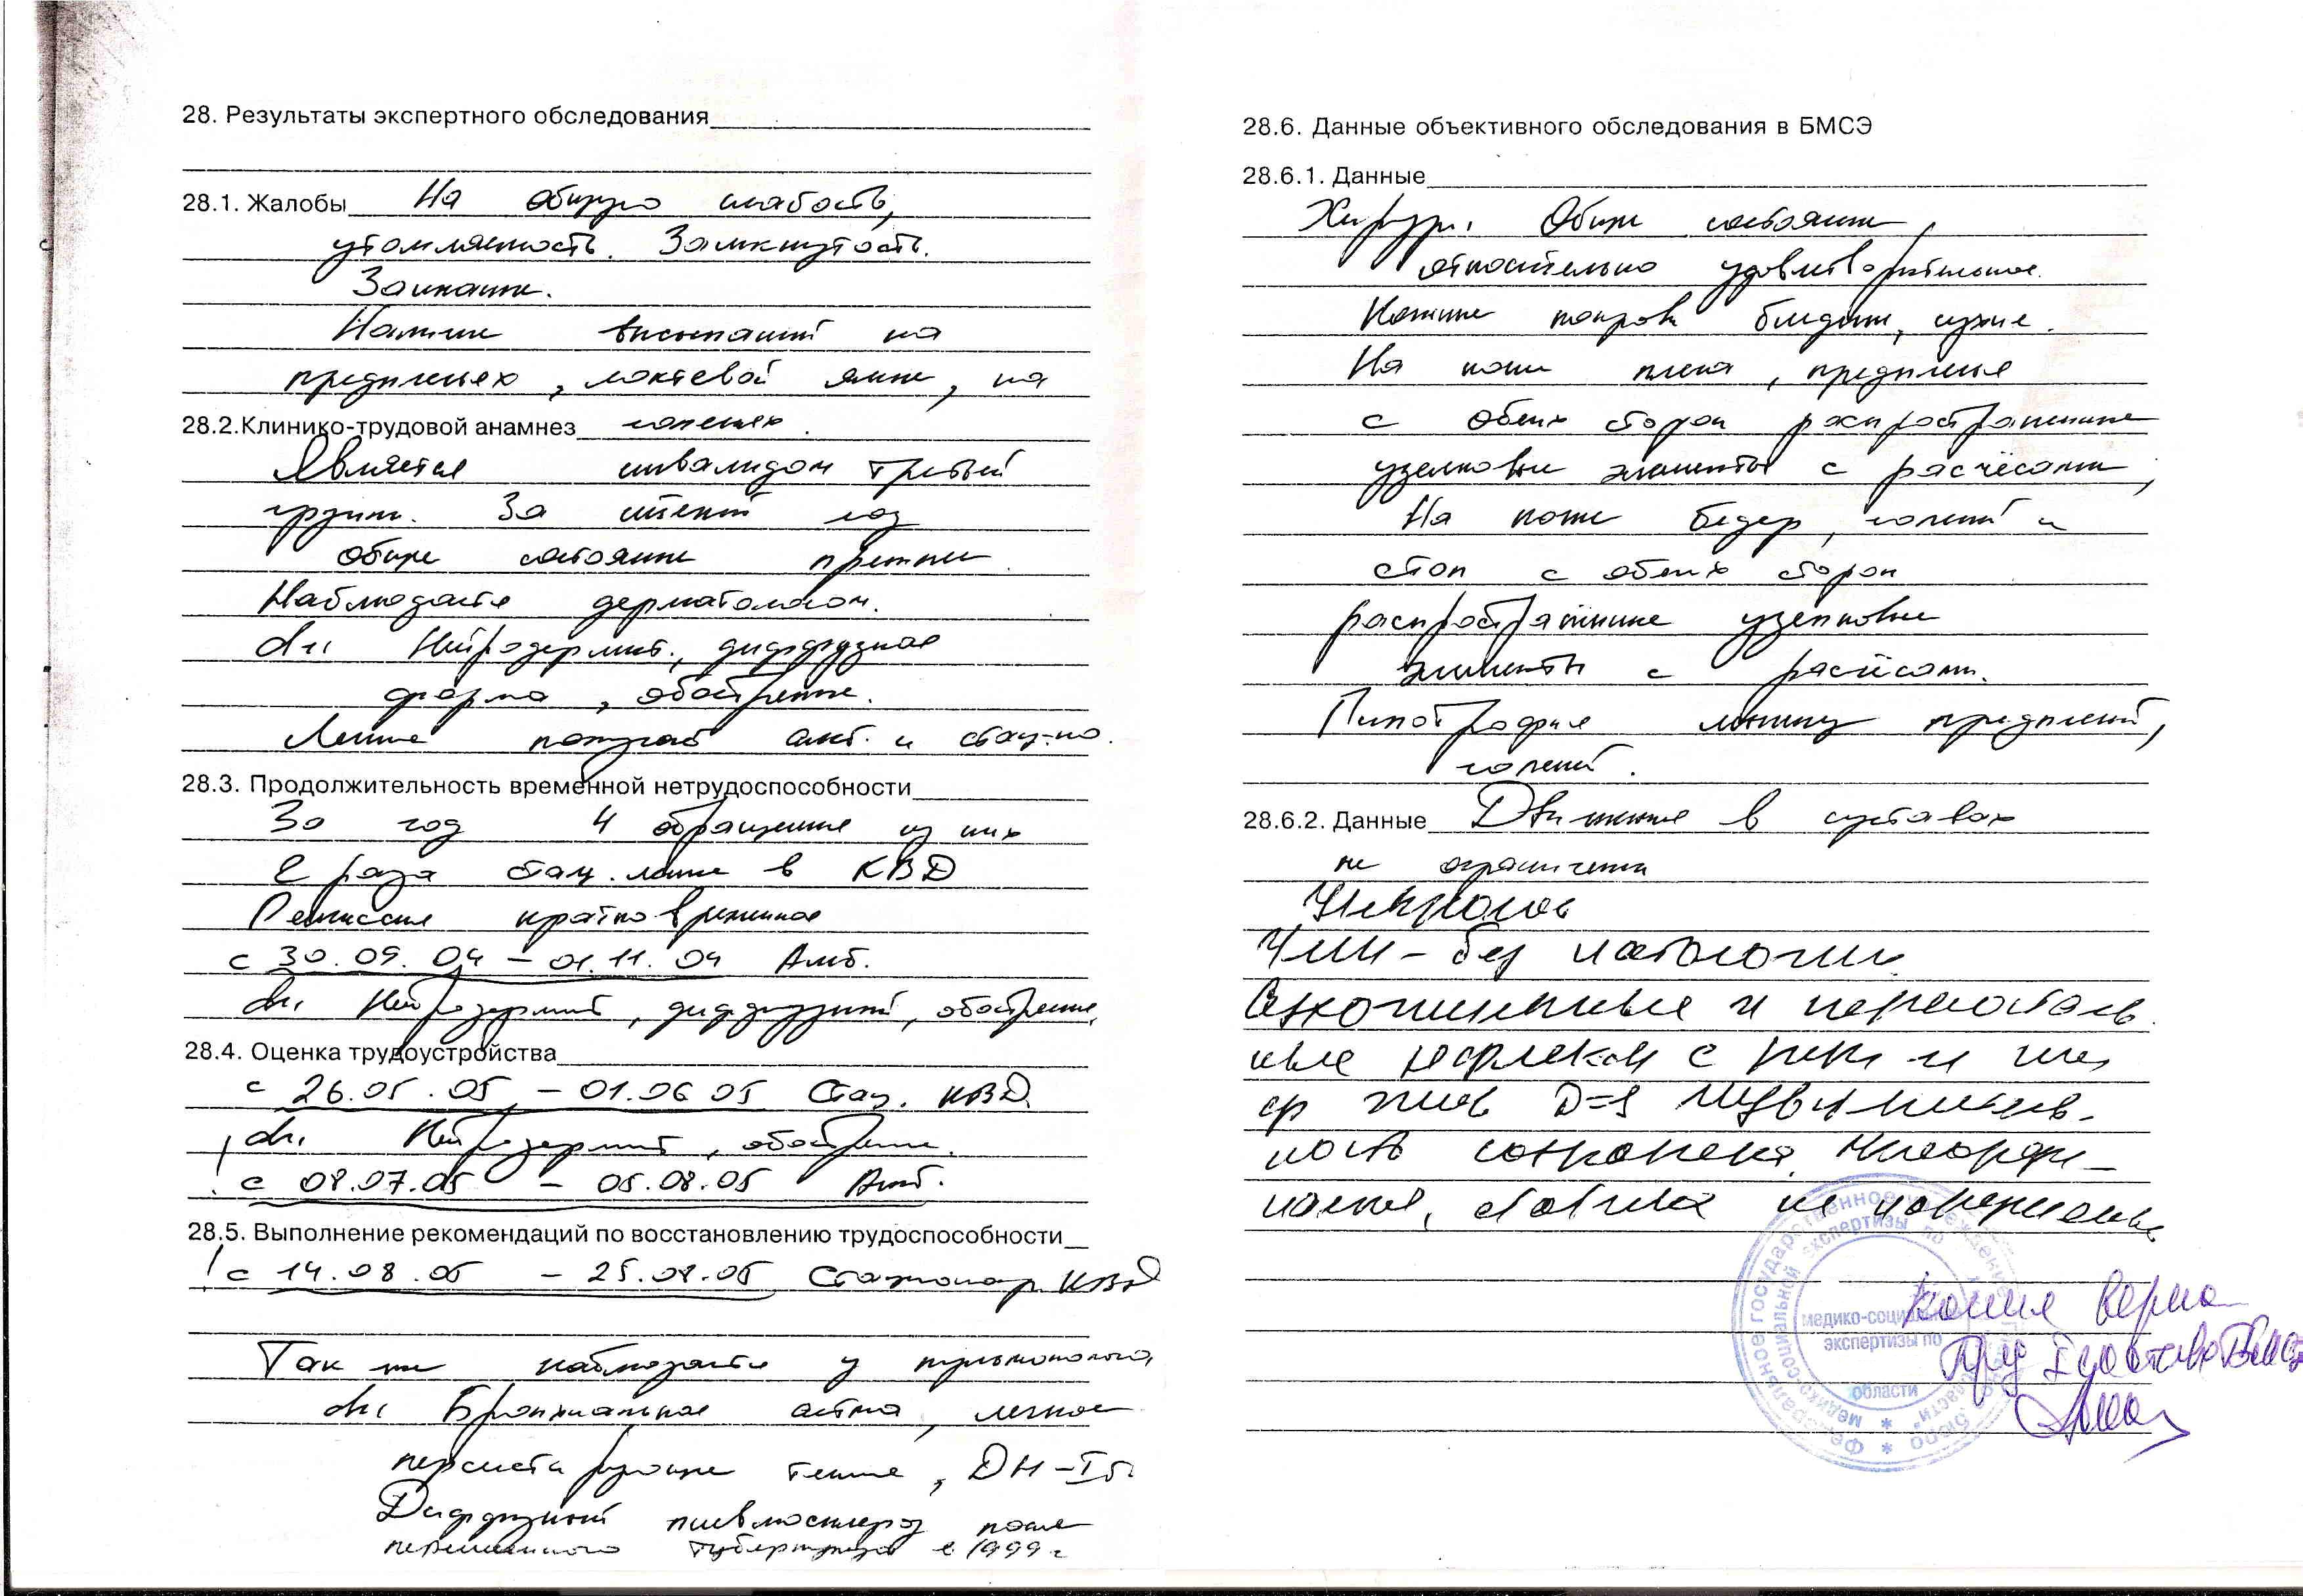 28. Результаты экспертного обследования
28.1. Жалобы На общую слабость,
утомляемость. Замкнутость.
Заикание.
Наличие высыпаний на
предплечьях, локтевой ямке, на
28.2.Клинико-трудовой анамнез голенях.
Является инвалидом третьей
группы. За истекший год
общее состояние прежнее.
Наблюдается дерматологом.
Ds: Нейродермит, диффузная
форма, обострение.
Лечение получает амб. и стац-но.
28.3. Продолжительность временной нетрудоспособности
За год 4 обращения из них
2 раза стац. лечение в КВД
Ремиссия кратковременная
с 30.09.04 – 01.11.04 Амб.
Ds: Нейродермит, диффузный, обострение.
28.4. Оценка трудоустройства
с 26.05.05 – 01.06.05 Стац. КВД.
Ds: Нейродермит, обострение.
! с 08.07.05 – 05.08.05 Амб.
28.5. Выполнение рекомендаций по восстановлению трудоспособности
! с 14.08.05 – 25.08.05 Стационар КВД
Так же наблюдается у пульмонолога,
Ds: Бронхиальная астма, легкое
персистирующее течение, ДН-I ст.
Диффузный пневмосклероз после
перенесенного туберкулеза в 1999 г
28.6. Данные объективного обследования в БМСЭ
28.6.1. Данные
Хирург: Общее состояние
относительно удовлетворительное.
Кожные покровы бледные, сухие.
На коже плеча, предплечья
с обеих сторон распространенные
узелковые элементы с расчёсами,
На коже бедер, голеней и
стоп с обеих сторон
распространенные узелковые
элементы с расчёсами.
Гипотрофия мышц предплечий,
голеней.
28.6.2. Данные Движения в суставах
не ограничены
Невролог
ЧМН – без патологии.
Сухожильные и периосталь
ные рефлексы с рук и
D=S чувствитель-
ность сохранена. Координ-
статика не нарушены
Копия верна
медико-социальной
экспертизы по
области